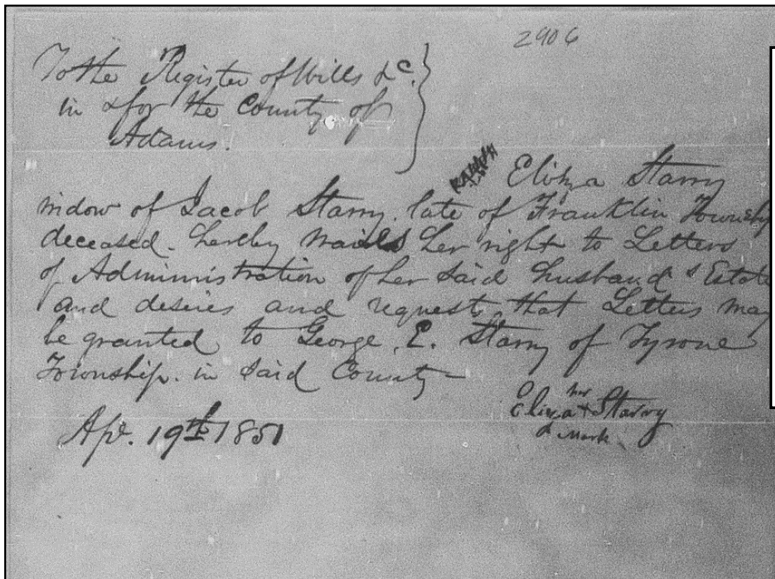 2906
To the Register of Wills &c.
in & for the County of
Adams.
Eliza Starry
widow of Jacob Starry. late of Franklin Township
deceased. hereby waives her right to Letters
of Administration of her said husband's Estate
and desires and request that Letters may
be granted to George E. Starry of Tyrone
Township. in said County
her
Eliza + Starry
Mark
Apr. 19th 1851